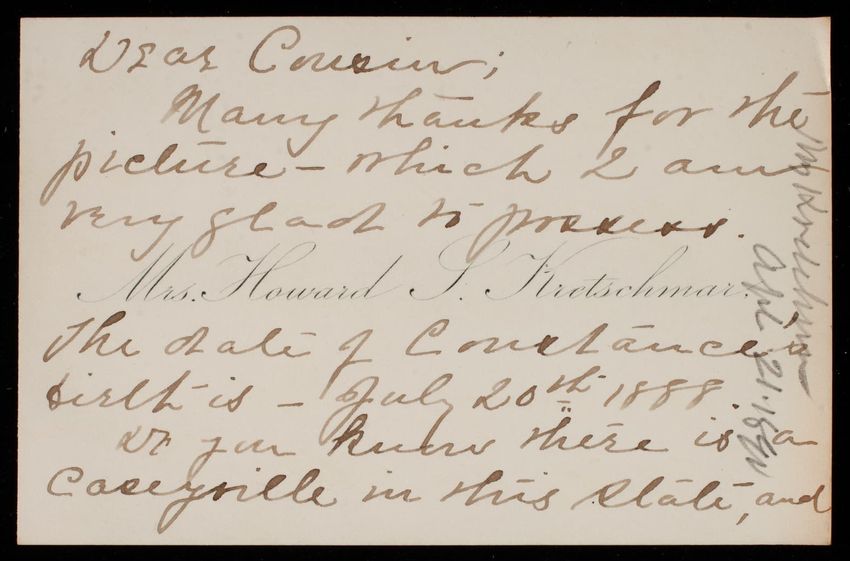 Dear Cousin;
Many thanks for the
picture - which I am
very glad to possess.
Mrs. Howard S. Kretschmar.
The date of Constance's
birth is - July 20th 1888.
Do you know there is a
Caseyville in this state, and
Mrs Kretschmar
Apl 21. 1890